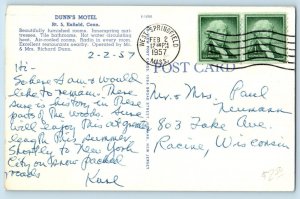 DUNN'S MOTEL
Rt. 5, Enfield, Conn.
Beautifully furnished rooms. Innerspring mattresses. Tile bathrooms. Hot water circulating heat. Air-cooled rooms. Radio in every room. Excellent restaurants nearby. Operated by Mr. & Mrs. Richard Dunn.
2-2-57
Hi-
So here I am & would
like to remain. There
sure is history in these
parts of the woods. Sure
will enjoy this at great
length this summer.
Shortly to New York
City on snow packed
roads
Karl
WEST SPRINGFIELD
FEB 2
1957
MASS.
POST CARD
Mr. & Mrs. Paul
Neumann
803 Lake Ave.
Racine, Wisconsin